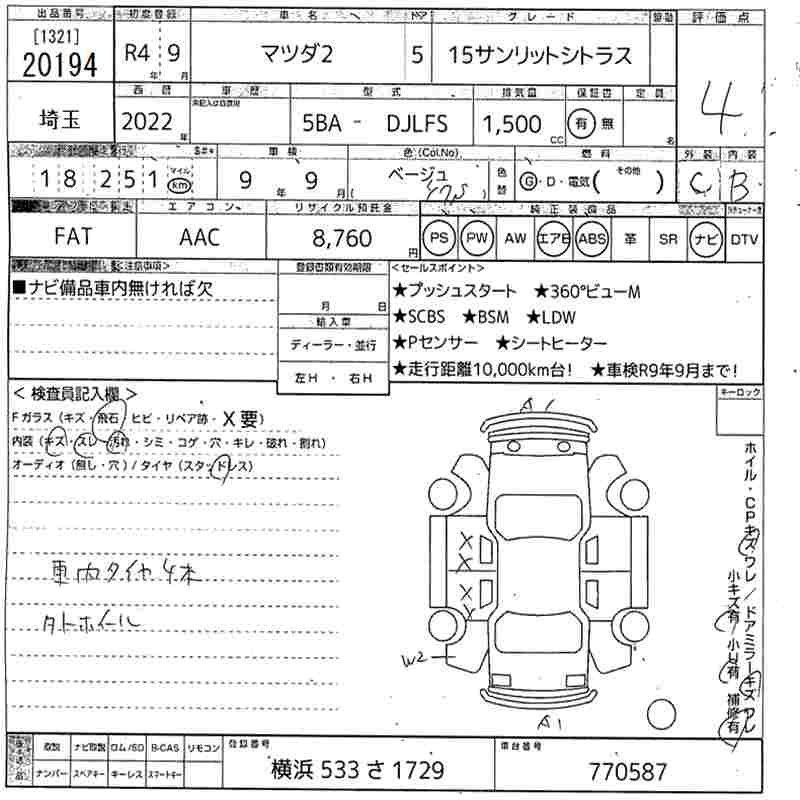 出品番号 初度登録 車名 ドア グレード 評価点
[1321]
20194 R4年 9月 マツダ2 5 15サンリットシトラス 4
西暦 車歴 型式 排気量 保証書 定員
埼玉 2022年 未記入は自家用 5BA - DJLFS 1,500cc 有 無 名
車検 色(Col.No) 燃料 外装 内装
18251 マイル km 9年 9月 ベージュ 47S 色替 G・D・電気( その他 ) C B
エアコン リサイクル預託金 純正装備品
FAT AAC 8,760円 PS PW AW エアB ABS 革 SR ナビ DTV
<注意事項> 登録書類有効期限 <セールスポイント>
■ナビ備品車内無ければ欠 月 日 ★プッシュスタート ★360°ビューM
輸入車 ★SCBS ★BSM ★LDW
ディーラー・並行 ★Pセンサー ★シートヒーター
左H・右H ★走行距離10,000km台! ★車検R9年9月まで!
<検査員記入欄> キーロック
Fガラス (キズ・飛石・ヒビ・リペア跡・X要)
内装 (キズ・スレ・汚れ・シミ・コゲ・穴・キレ・破れ・割れ)
オーディオ (無し・穴) / タイヤ (スタッドレス)
A1
X
X
X
X
車内タイヤ4本
タトホイール
W2
A1
ホイル・CPキズワレ/ドアミラーキズワレ
小キズ有/小凹有 補修有
取説 ナビ取説 ロム/SD B-CAS リモコン 登録番号 車台番号
ナンバー スペアキー キーレス スマートキー 横浜 533 さ 1729 770587